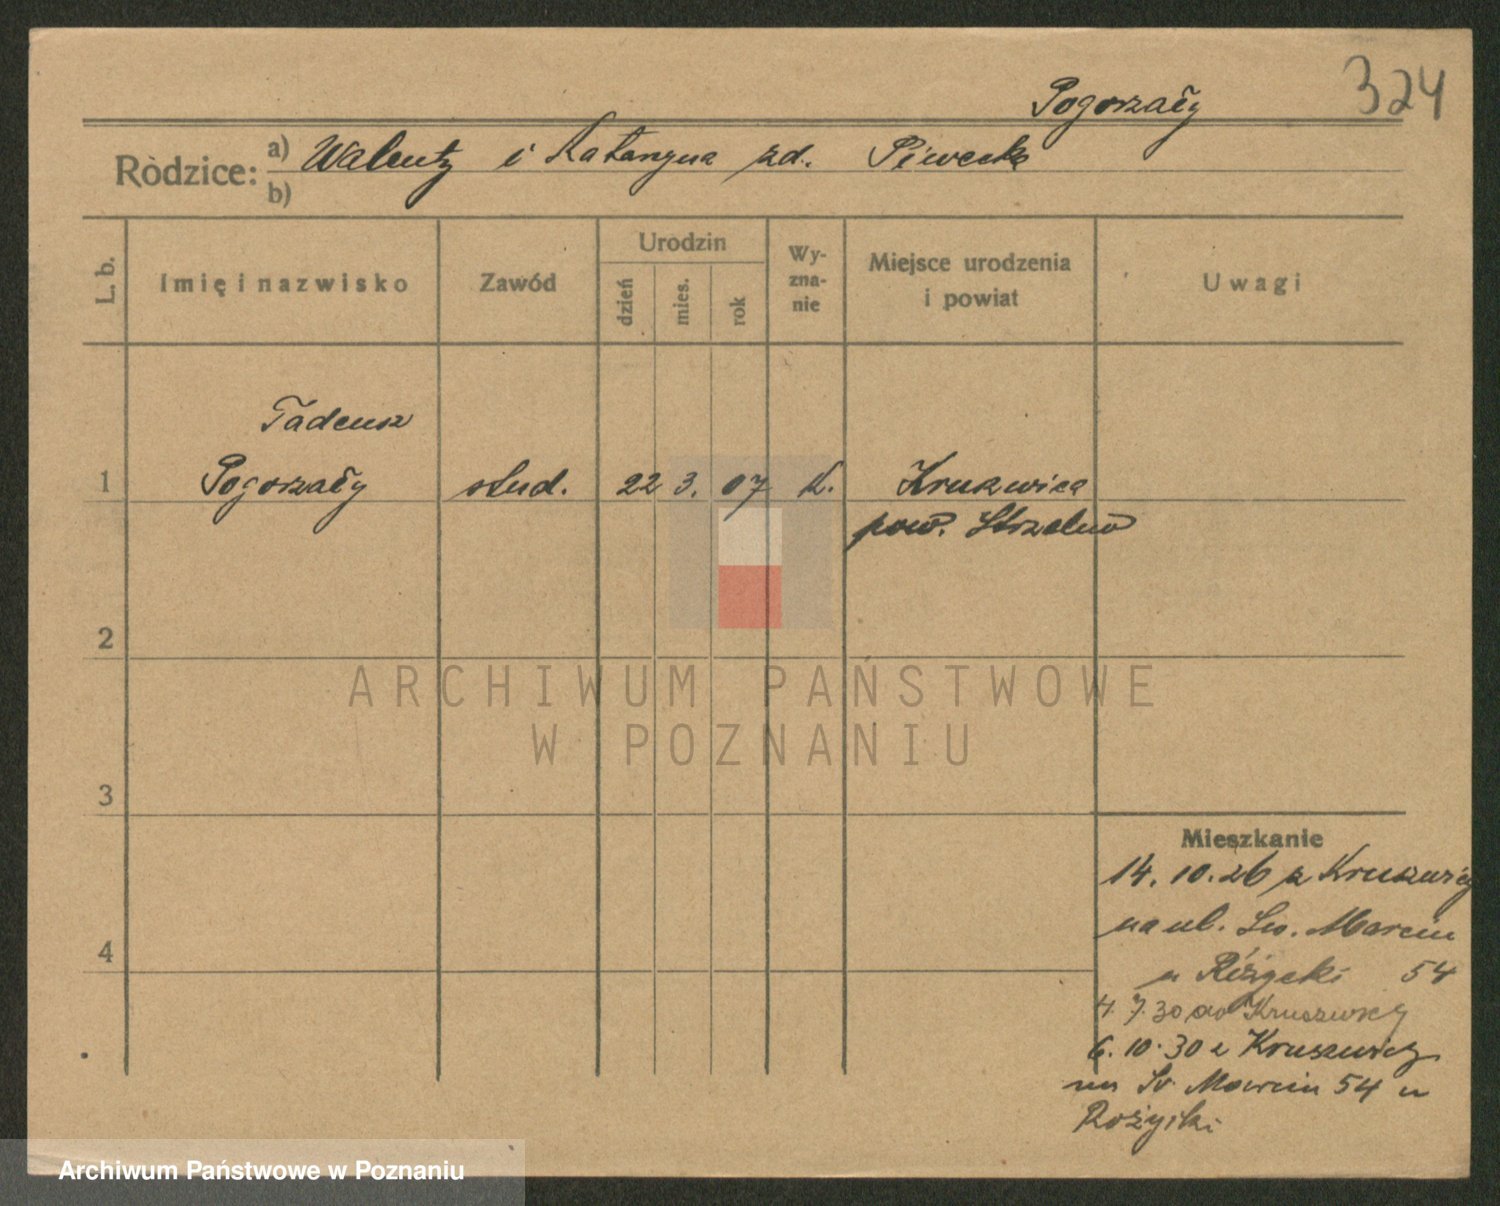 324
Pogorzały
Rodzice: a) Walenty i Katarzyna zd. Piwecka
b)
L. b. Imię i nazwisko Zawód Urodzin dzień mies. rok Wyznanie Miejsce urodzenia i powiat Uwagi
Tadeusz
1 Pogorzały stud. 22 3. 07 K. Kruszwica
pow. Strzelno
2
ARCHIWUM PAŃSTWOWE
W POZNANIU
3
Mieszkanie
14. 10. 26 z Kruszwicy
na ul. Św. Marcin
4
u 54
4. 7. 30 do Kruszwicy
6. 10. 30 z Kruszwicy
na Św Marcin 54 u
Archiwum Państwowe w Poznaniu